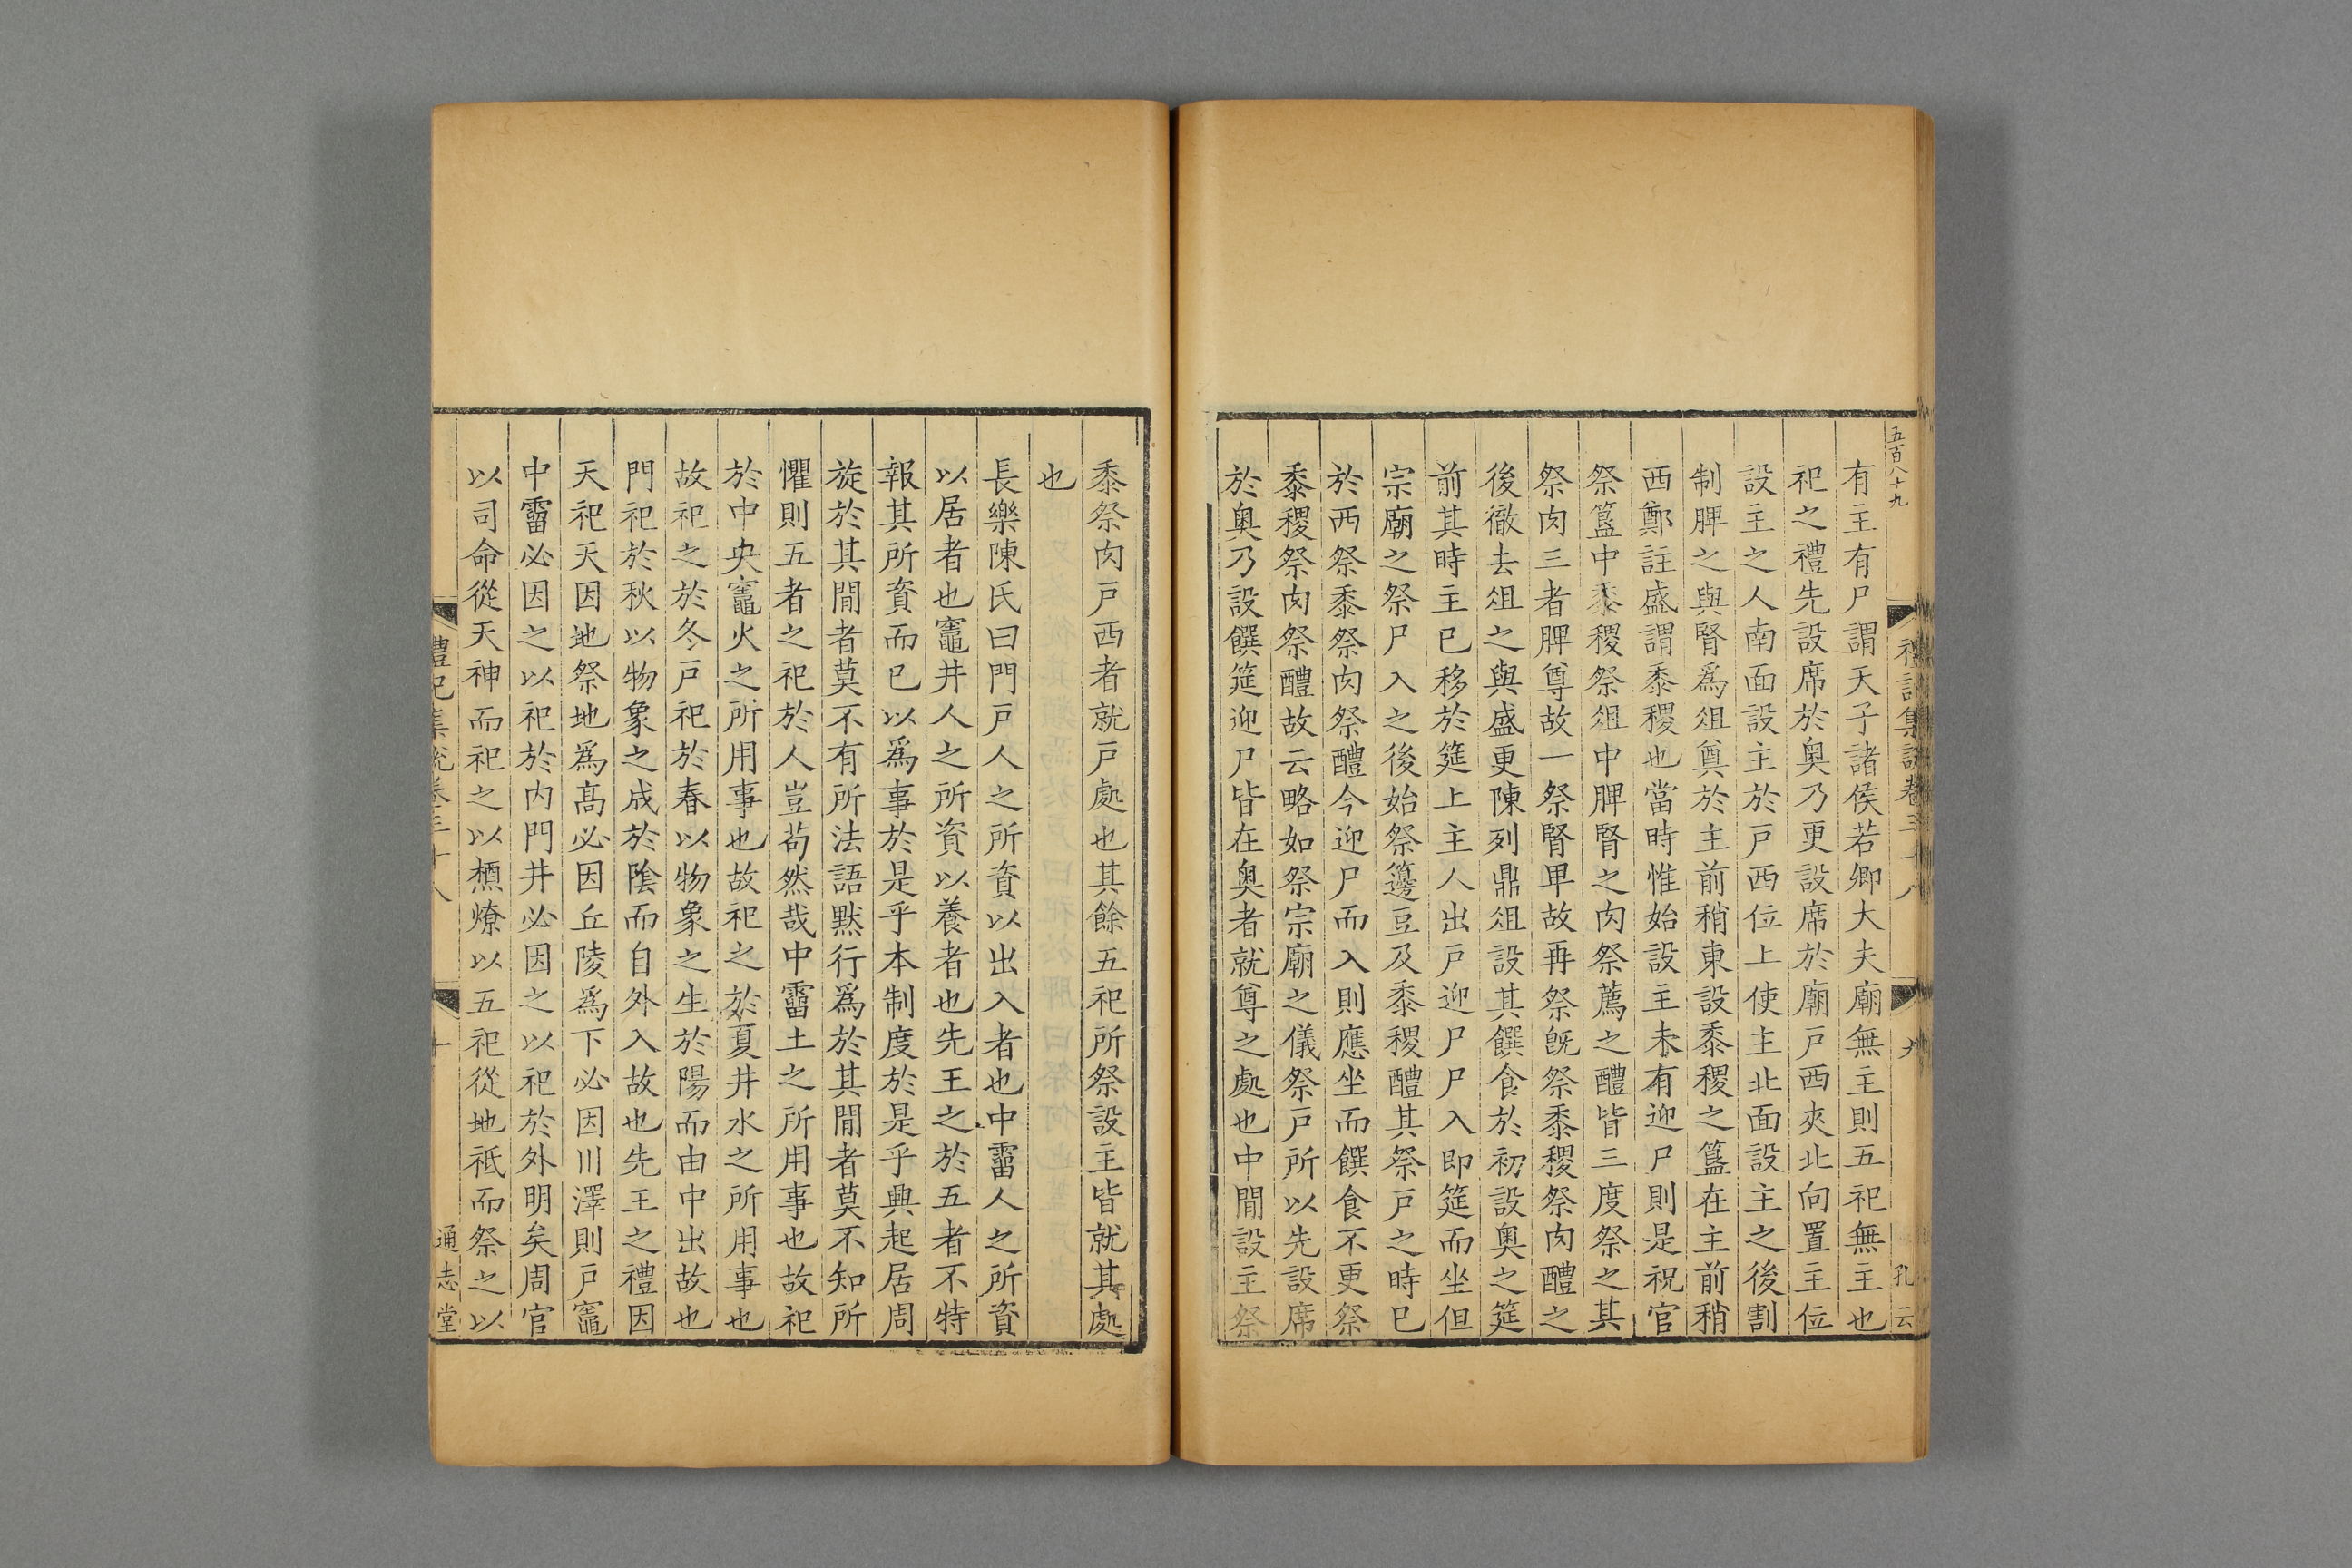 五百八十九
禮記集說卷三十八
九
孔云
有主有尸謂天子諸侯若卿大夫廟無主則五祀無主也
祀之禮先設席於奥乃更設席於廟戸西夾北向置主位
設主之人南面設主於戸西位上使主北面設主之後割
制脾之與腎爲俎奠於主前稍東設黍稷之簋在主前稍
西鄭註盛謂黍稷也當時惟始設主未有迎尸則是祝官
祭簋中黍稷祭俎中脾腎之肉祭薦之醴皆三度祭之其
祭肉三者脾尊故一祭腎卑故再祭旣祭黍稷祭肉醴之
後徹去俎之與盛更陳列鼎俎設其饌食於初設奥之筵
前其時主已移於筵上主人出戸迎尸尸入即筵而坐但
宗廟之祭尸入之後始祭籩豆及黍稷醴其祭戸之時已
於西祭黍祭肉祭醴今迎尸而入則應坐而饌食不更祭
黍稷祭肉祭醴故云略如祭宗廟之儀祭戸所以先設席
於奥乃設饌筵迎尸皆在奥者就尊之處也中間設主祭
黍祭肉戸西者就戸處也其餘五祀所祭設主皆就其處
也
長樂陳氏曰門戸人之所資以出入者也中霤人之所資
以居者也竈井人之所資以養者也先王之於五者不特
報其所資而已以爲事於是乎本制度於是乎興起居周
旋於其間者莫不有所法語默行爲於其間者莫不知所
懼則五者之祀於人豈苟然哉中霤土之所用事也故祀
於中央竈火之所用事也故祀之於夏井水之所用事也
故祀之於冬戸祀於春以物象之生於陽而由中出故也
門祀於秋以物象之成於陰而自外入故也先王之禮因
天祀天因地祭地爲髙必因丘陵爲下必因川澤則戸竈
中霤必因之以祀於内門井必因之以祀於外明矣周官
以司命從天神而祀之以槱燎以五祀從地祇而祭之以
禮記集說卷三十八
十
通志堂